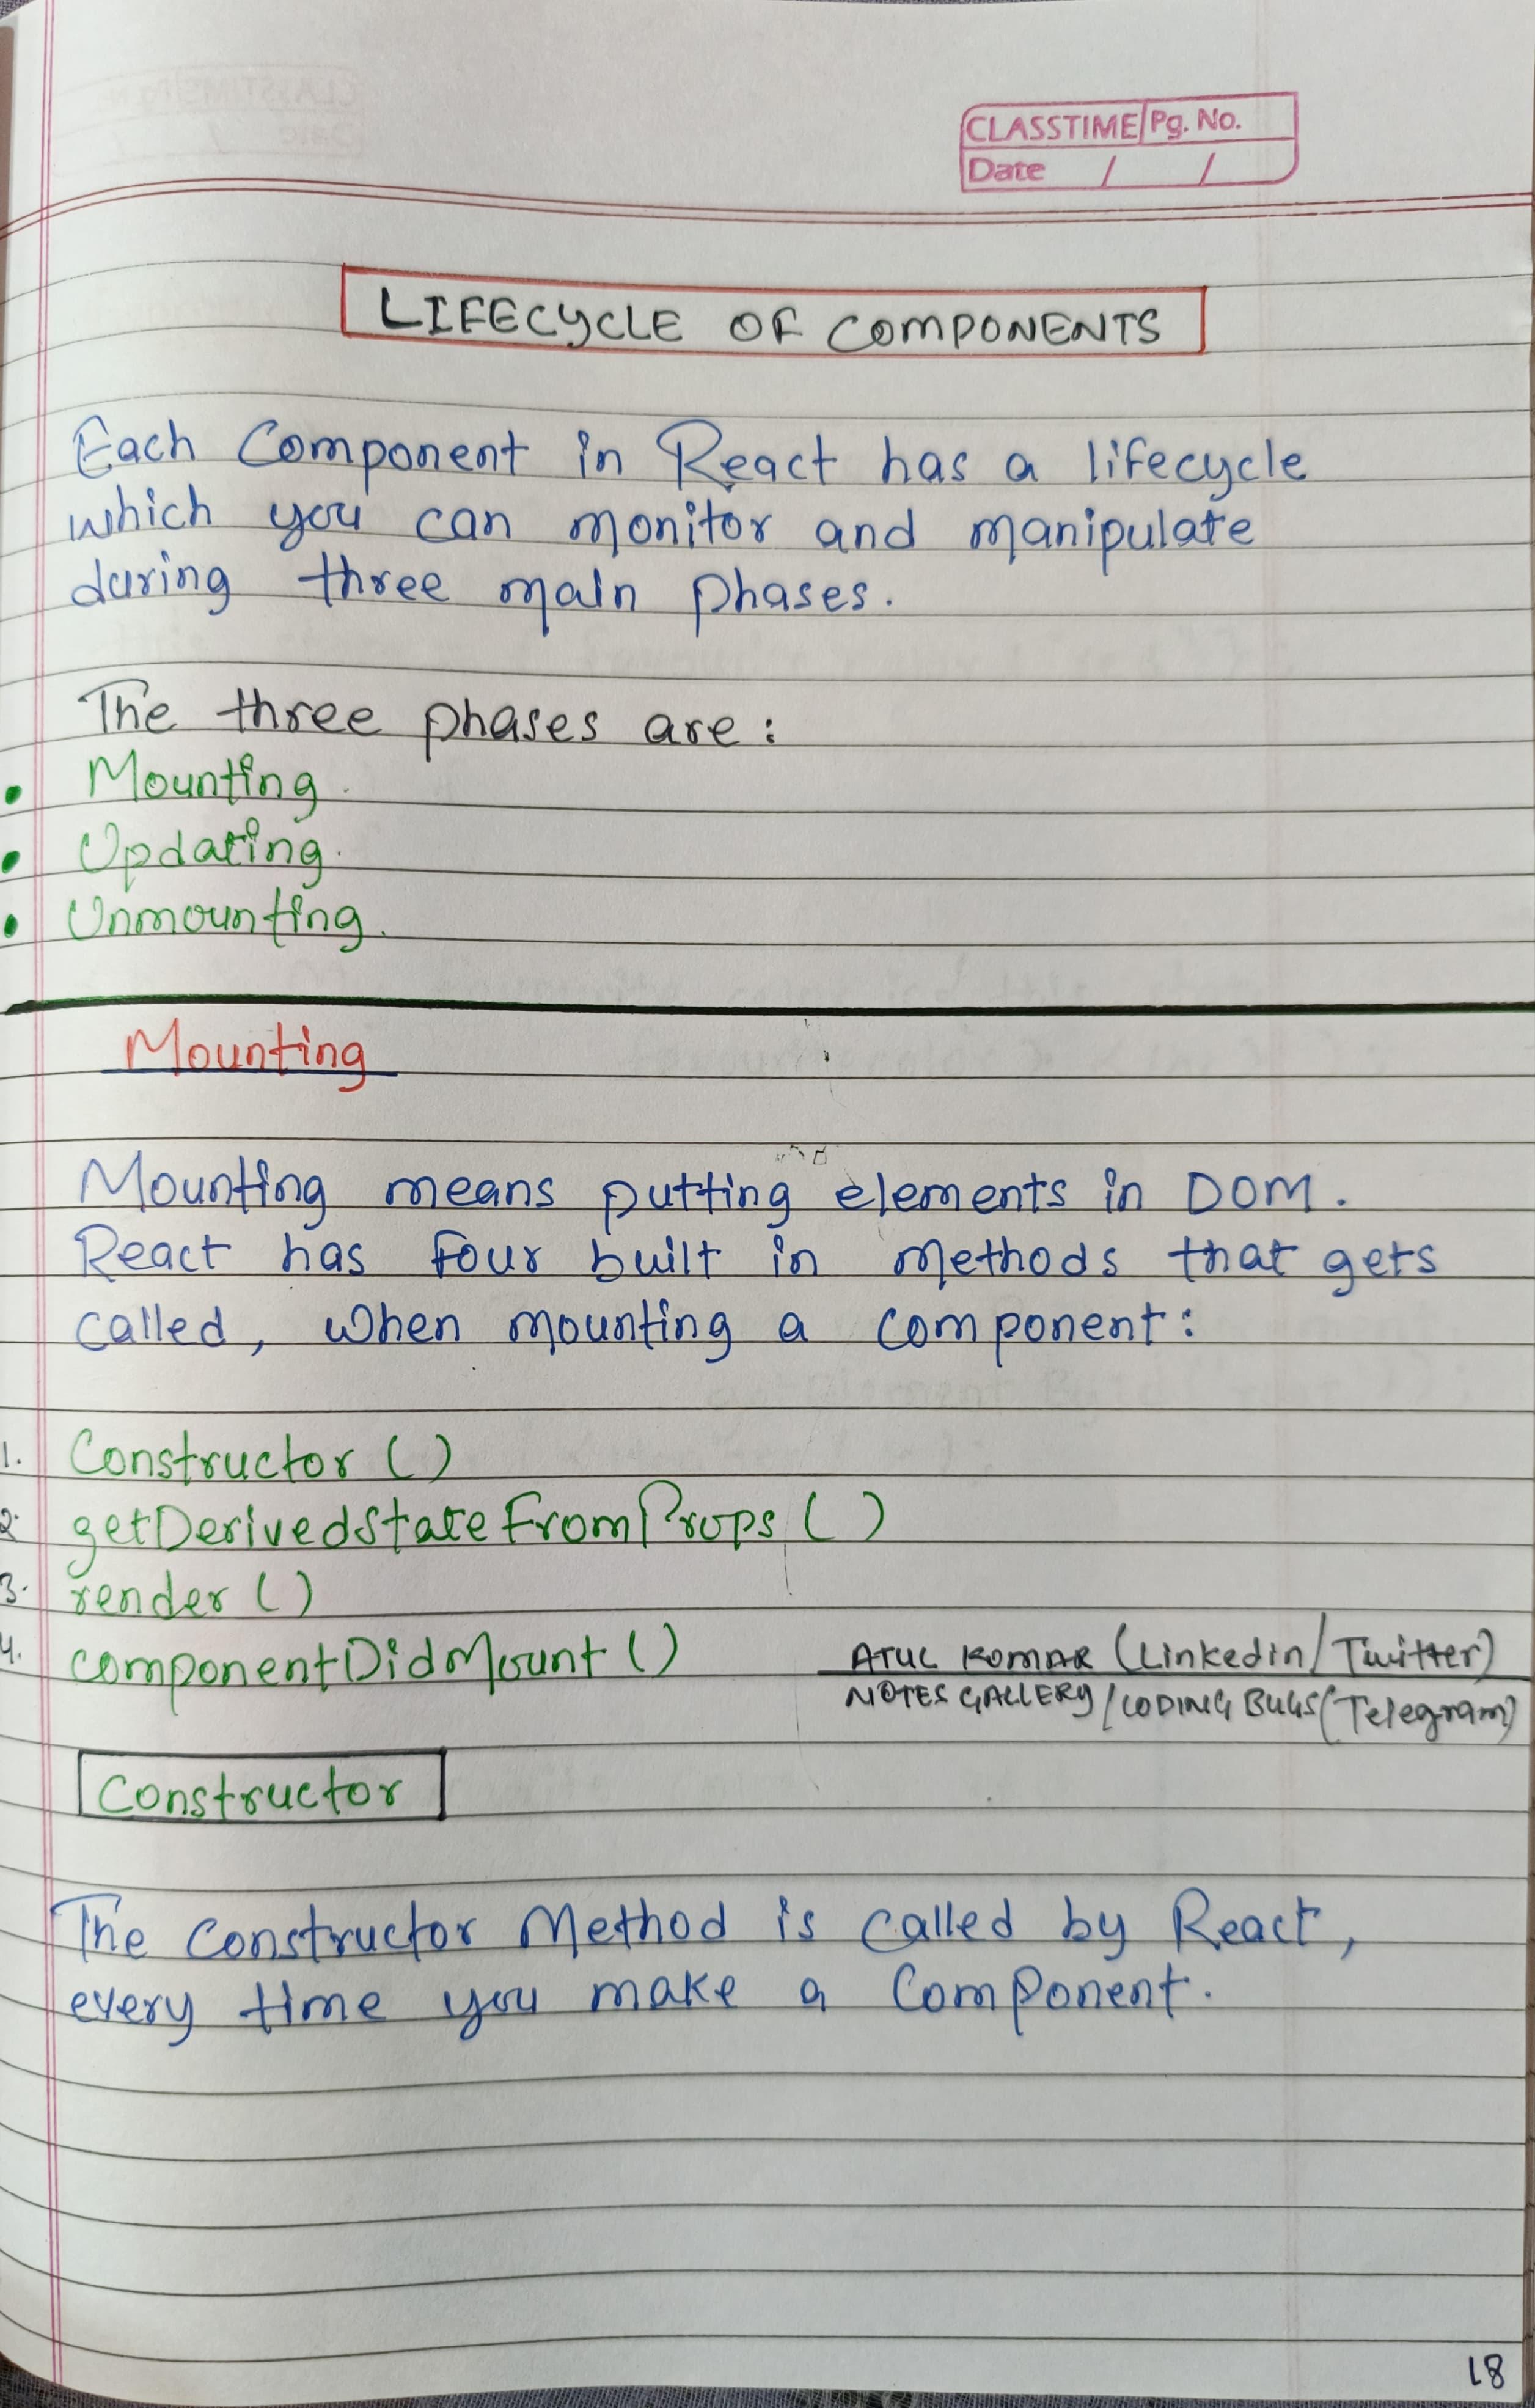 CLASSTIME Pg. No.
Date / /
LIFECYCLE OF COMPONENTS
Each Component in React has a lifecycle
which you can monitor and manipulate
during three main phases.
The three phases are:
• Mounting.
• Updating.
• Unmounting.
Mounting
Mounting means putting elements in DOM.
React has four built in methods that gets
called, when mounting a component:
1. Constructor ()
2. getDerivedStateFromProps ()
3. render ()
4. componentDidMount ()
ATUL KUMAR (Linkedin/Twitter)
NOTES GALLERY/CODING BUGS(Telegram)
Constructor
The Constructor Method is called by React,
every time you make a Component.
18